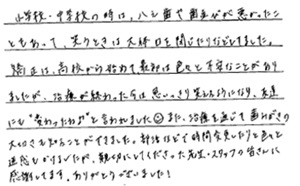 小学校・中学校の時は、八重歯や歯並びが悪かったこ
ともあって、笑うときは大体口を閉じたりなどしてました。
矯正は、高校から始めて最初は色々と不安なことがあり
ましたが、治療が終わった今は思いっきり笑えるようになり、友達
にも"変わったね"と言われました☺また、治療を通じて歯みがきの
大切さも知ることができました。部活などで時間変更したりと色々と
迷惑もかけましたが、親切にしてくださった先生・スタッフの皆さんに
感謝してます。ありがとうございました!